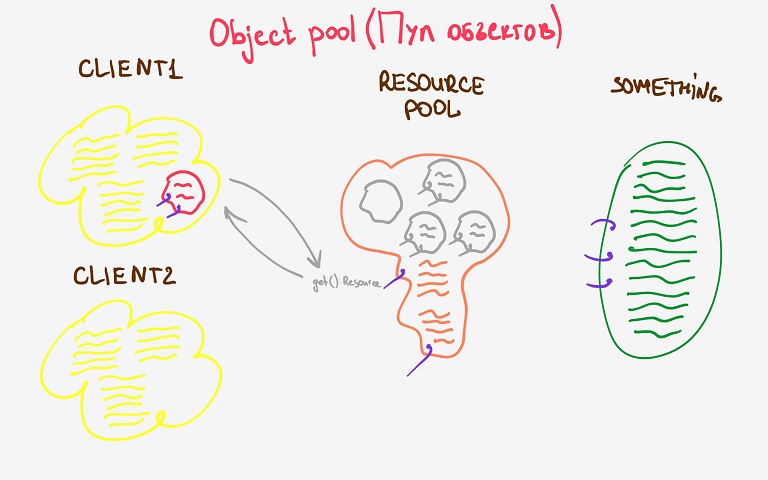 Object pool (Пул объектов)
CLIENT1
RESOURCE
POOL
SOMETHING
get():Resource
CLIENT2